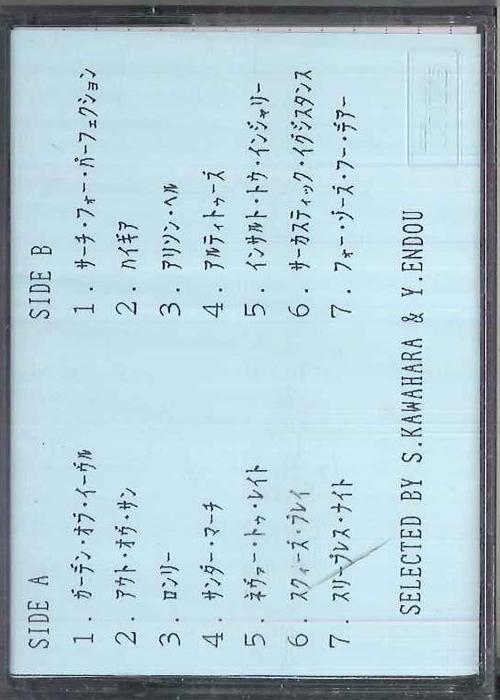 SIDE A
1. ガーデン・オブ・イーヴル
2. アウト・オヴ・サン
3. ロンリー
4. サンダー・マーチ
5. ネヴァー・トゥ・レイト
6. スクィーズ・プレイ
7. スリープレス・ナイト
SIDE B
1. サーチ・フォー・パーフェクション
2. ハイギア
3. アリソン・ヘル
4. アルティトゥーズ
5. インサルト・トゥ・インジャリー
6. サーカスティック・イグジスタンス
7. フォー・ゾーズ・フー・デアー
SELECTED BY S.KAWAHARA & Y.ENDOU